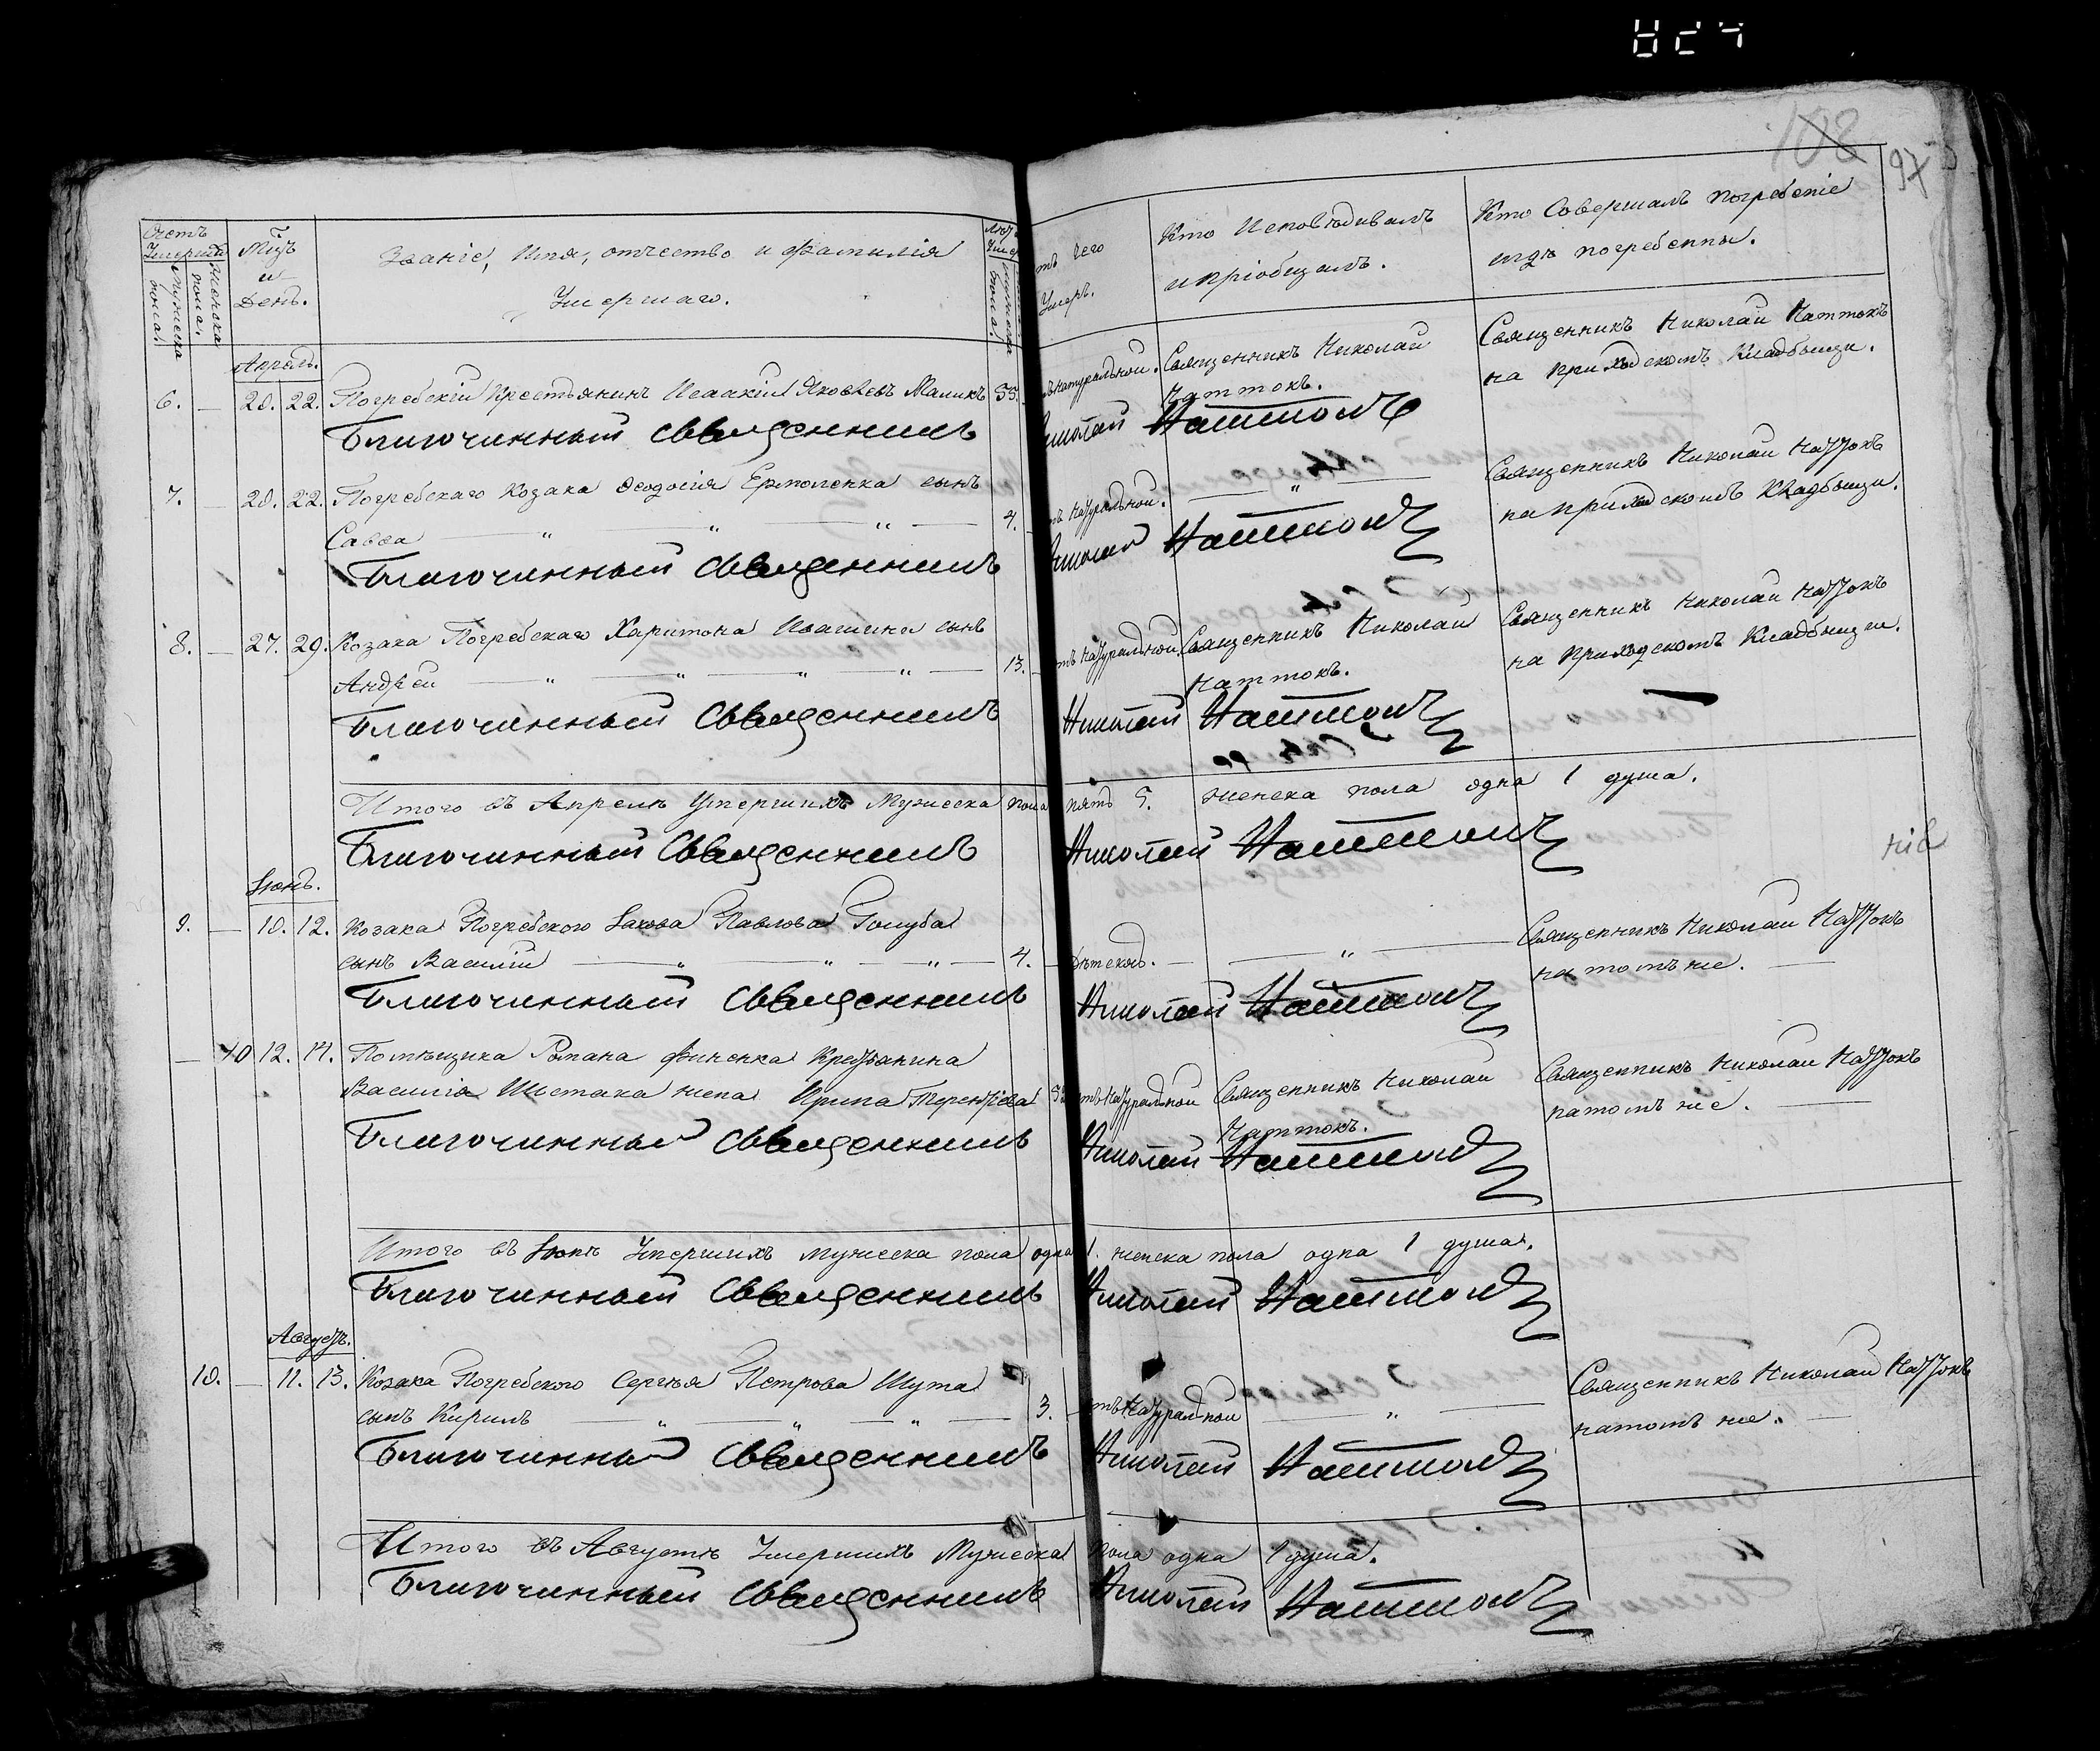 108
97
Счетъ Умершихъ
Мужеска пола.
Женска пола.
Мцъ и День.
Званіе, Имя, отчество и Фамилія
Умершаго.
Мужеска пола.
чего
Умеръ.
Кто Исповѣдивалъ
и пріобщалъ.
Кто Совершалъ погребеніе
игдѣ погребенны.
Апрель.
6. — 20. 22. Погребскій Крестьянинъ Исаакій Яковлевъ Маликъ 55. натуральной. Священникъ Николай Священникъ Николай Наттокъ
Наттокъ. на приходскомъ Кладбыщи.
Благочинный Священникъ Николай Наттокъ
7. — 20. 22. Погребскаго Козака Феодосія Ермоленка сынъ
Савва — „ — „ — „ — 4. натуральной. — „ — Священникъ Николай Наттокъ
на приходскомъ Кладбыщи.
Благочинный Священникъ Николай Наттокъ
8. — 27. 29. Козака Погребскаго Харитона Ивашини сынъ
Андрей — „ — „ — „ — „ — 13. натуральной. Священникъ Николай Священникъ Николай Наттокъ
Наттокъ. на приходскомъ Кладбыщи.
Благочинный Священникъ Николай Наттокъ
Итого въ Апреле Умершихъ Мужеска пола пять 5. женска пола одна 1 душа.
Благочинный Священникъ Николай Наттокъ
ніе
Іюнь.
9. — 10. 12. Козака Погребского Іакова Павлова Голуба
сынъ Василій — „ — „ — „ — 4. — Дѣтской. — „ — Священникъ Николай Наттокъ
на томъ же. —
Благочинный Священникъ Николай Наттокъ
— 10 12. 14. Помѣщика Романа Фененка Крестьянина
Василія Шестака жена Ирина Терентіева натуральной Священникъ Николай Священникъ Николай Наттокъ
Наттокъ. на томъ же. —
Благочинный Священникъ Николай Наттокъ
Итого въ Іюнѣ Умершихъ мужеска пола одна 1. женска пола одна 1 душа.
Благочинный Священникъ Николай Наттокъ
Августъ.
10. — 11. 13. Козака Погребского Сергѣя Петрова Шута
сынъ Кирилъ — „ — „ — „ — 3. — отъ Натуральной — „ — Священникъ Николай Наттокъ
на томъ же. —
Благочинный Священникъ Николай Наттокъ
Итого въ Августѣ Умершихъ Мужеска пола одна 1 душа.
Благочинный Священникъ Николай Наттокъ